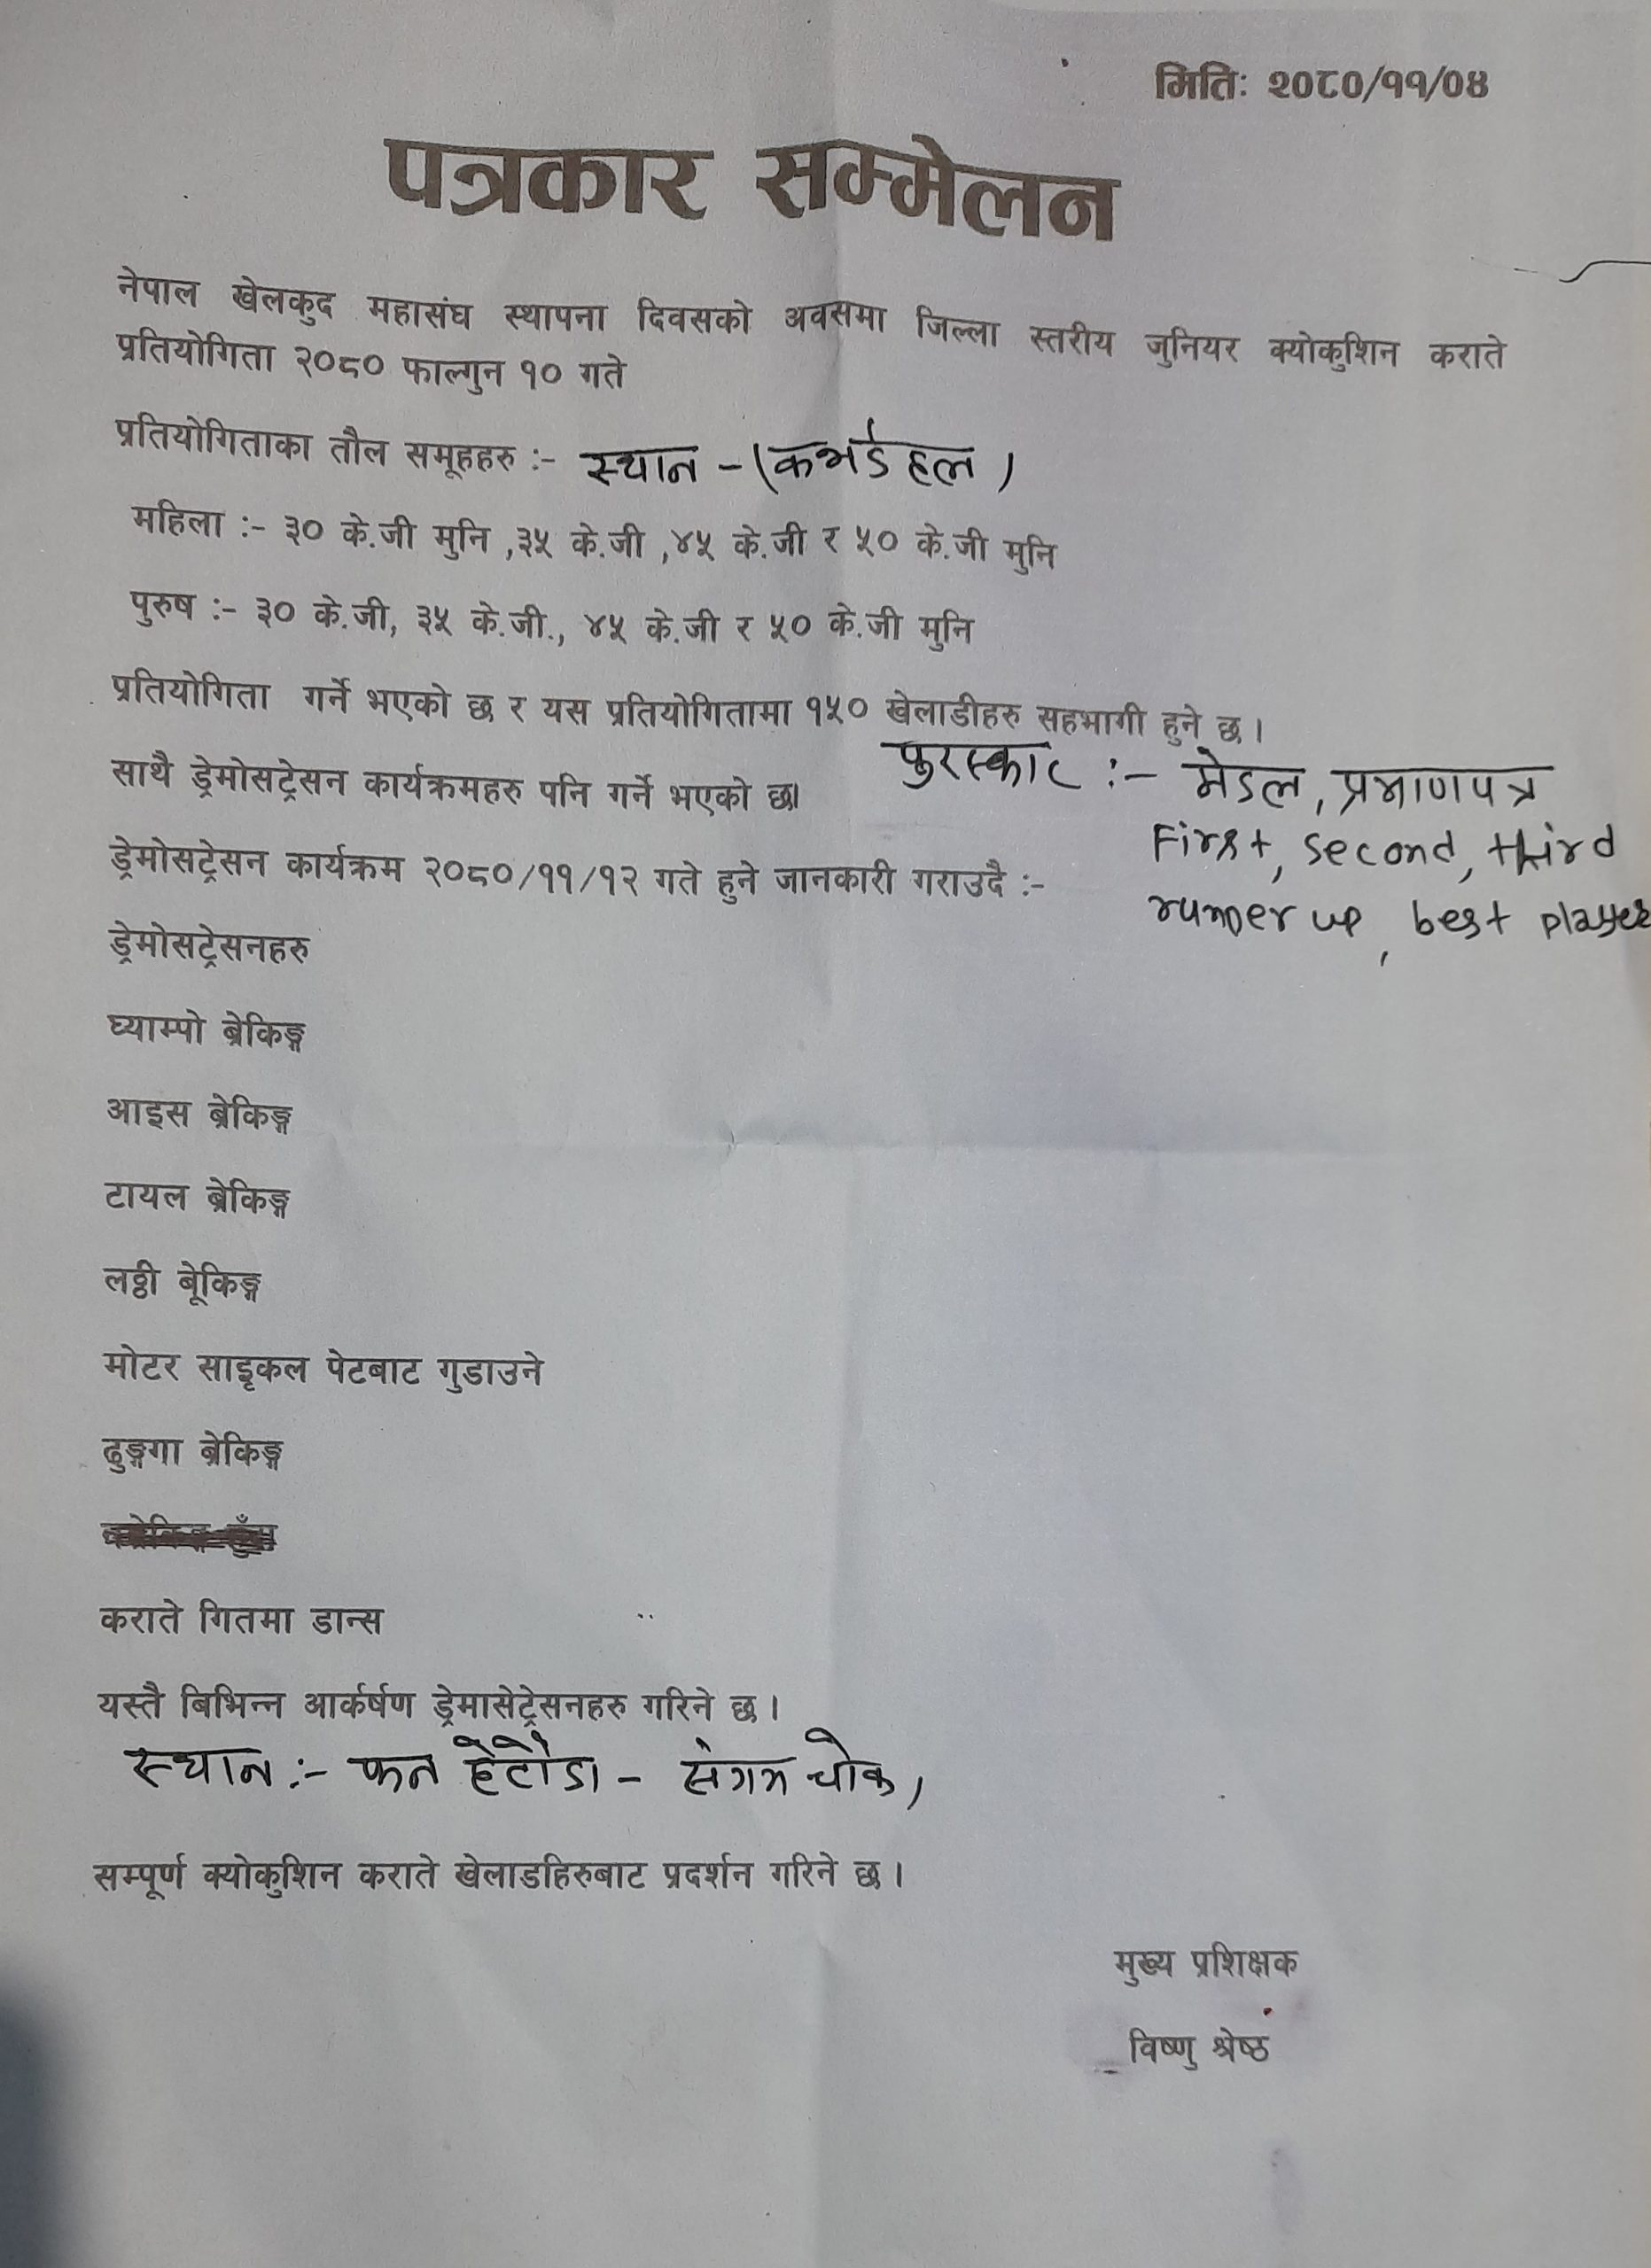 मितिः २०८०/११/०४
पत्रकार सम्मेलन
नेपाल खेलकुद महासंघ स्थापना दिवसको अवसमा जिल्ला स्तरीय जुनियर क्योकुशिन कराते
प्रतियोगिता २०८० फाल्गुन १० गते
प्रतियोगिताका तौल समूहहरु :- स्थान - (कभर्डहल)
महिला :- ३० के.जी मुनि ,३५ के.जी ,४५ के.जी र ५० के.जी मुनि
पुरुष :- ३० के.जी, ३५ के.जी., ४५ के.जी र ५० के.जी मुनि
प्रतियोगिता गर्ने भएको छ र यस प्रतियोगितामा १५० खेलाडीहरु सहभागी हुने छ।
साथै ड्रेमोसट्रेसन कार्यक्रमहरु पनि गर्ने भएको छ।
पुरस्कार :- मेडल, प्रमाणपत्र
First, second, third
runner up, best player
ड्रेमोसट्रेसन कार्यक्रम २०८०/११/१२ गते हुने जानकारी गराउदै :-
ड्रेमोसट्रेसनहरु
घ्याम्पो ब्रेकिङ्ग
आइस ब्रेकिङ्ग
टायल ब्रेकिङ्ग
लठ्ठी बे्रकिङ्ग
मोटर साइकल पेटबाट गुडाउने
ढुङ्गगा ब्रेकिङ्ग
कराते गितमा डान्स
यस्तै बिभिन्न आर्कर्षण ड्रेमासेट्रेसनहरु गरिने छ।
स्थान :- फन हेटौंडा - संगम चोक,
सम्पूर्ण क्योकुशिन कराते खेलाडहिरुबाट प्रदर्शन गरिने छ।
मुख्य प्रशिक्षक
विष्णु श्रेष्ठ